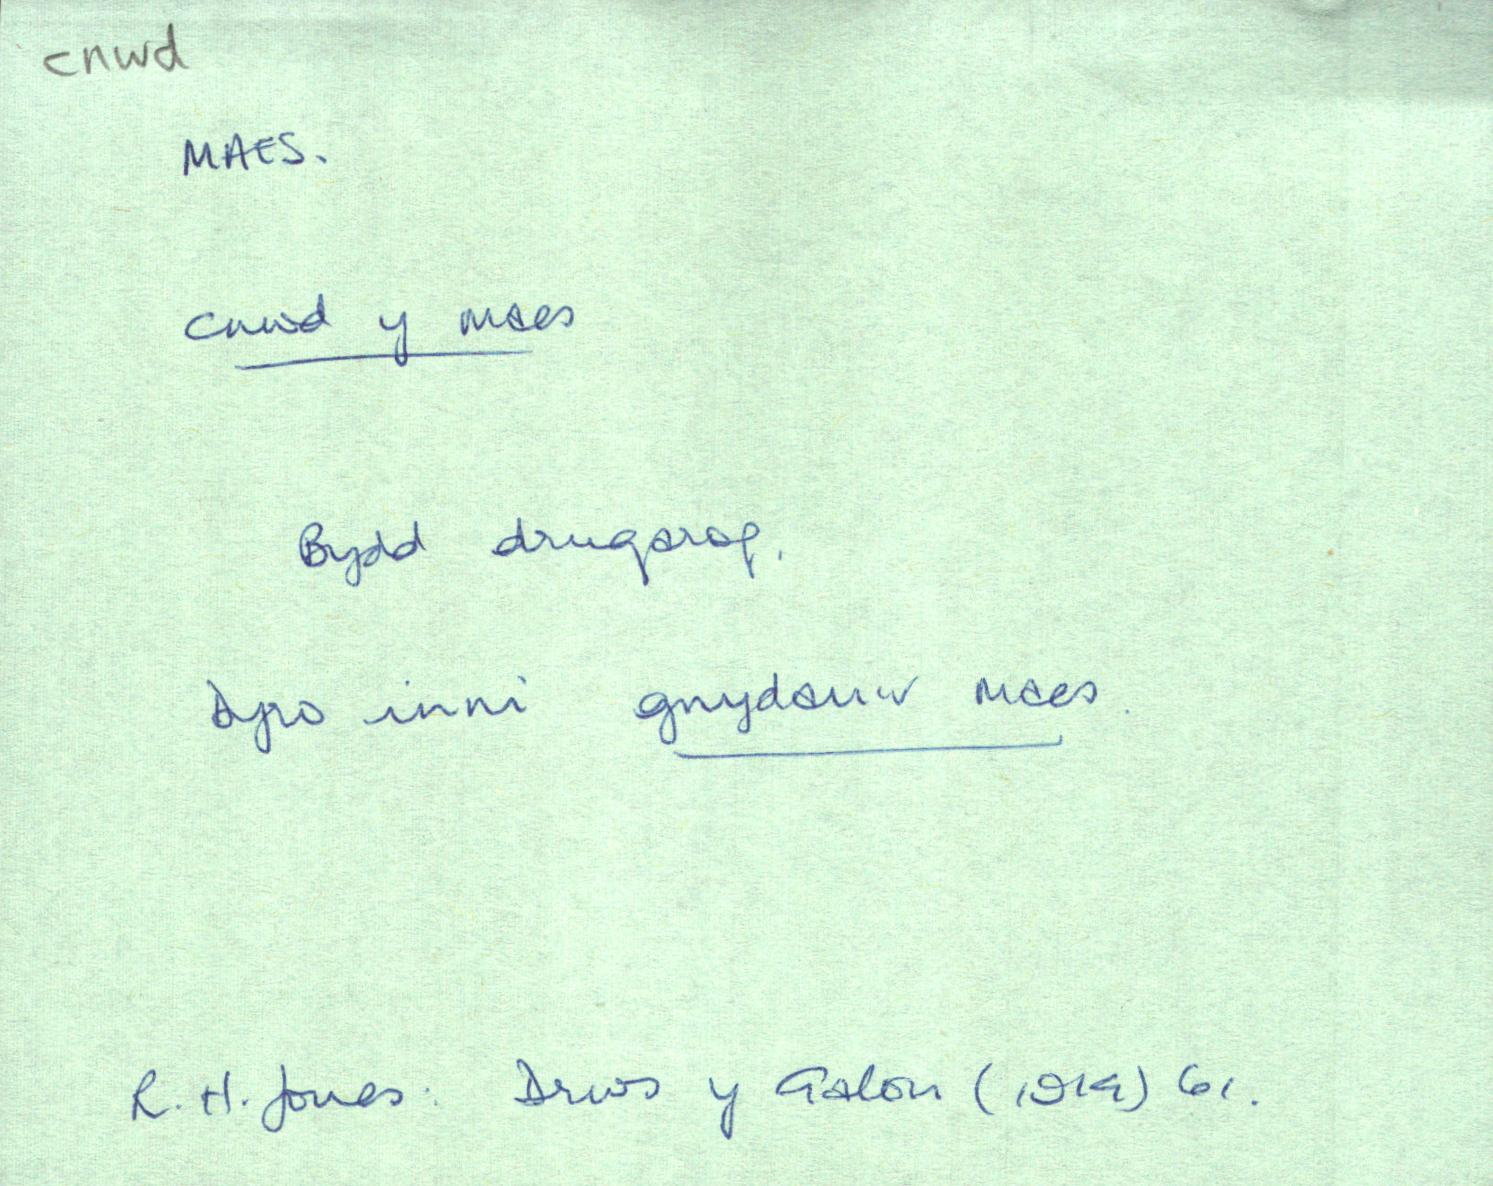 cnwd
MAES.
cnwd y maes
Bydd drugarog.
Dyro inni gnydau'r maes.
R. H. Jones: Drws y Galon (1919) 61.